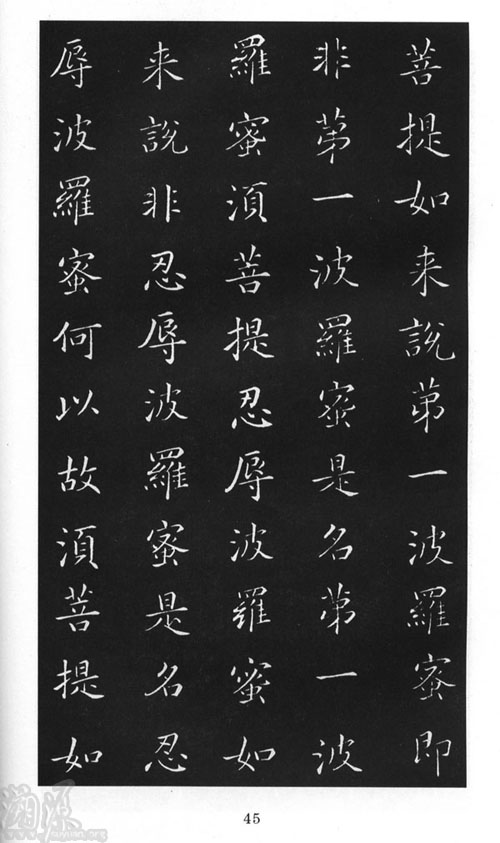 菩提如来說苐一波羅蜜即
非苐一波羅蜜是名苐一波
羅蜜湏菩提忍辱波羅蜜如
来說非忍辱波羅蜜是名忍
辱波羅蜜何以故湏菩提如
45